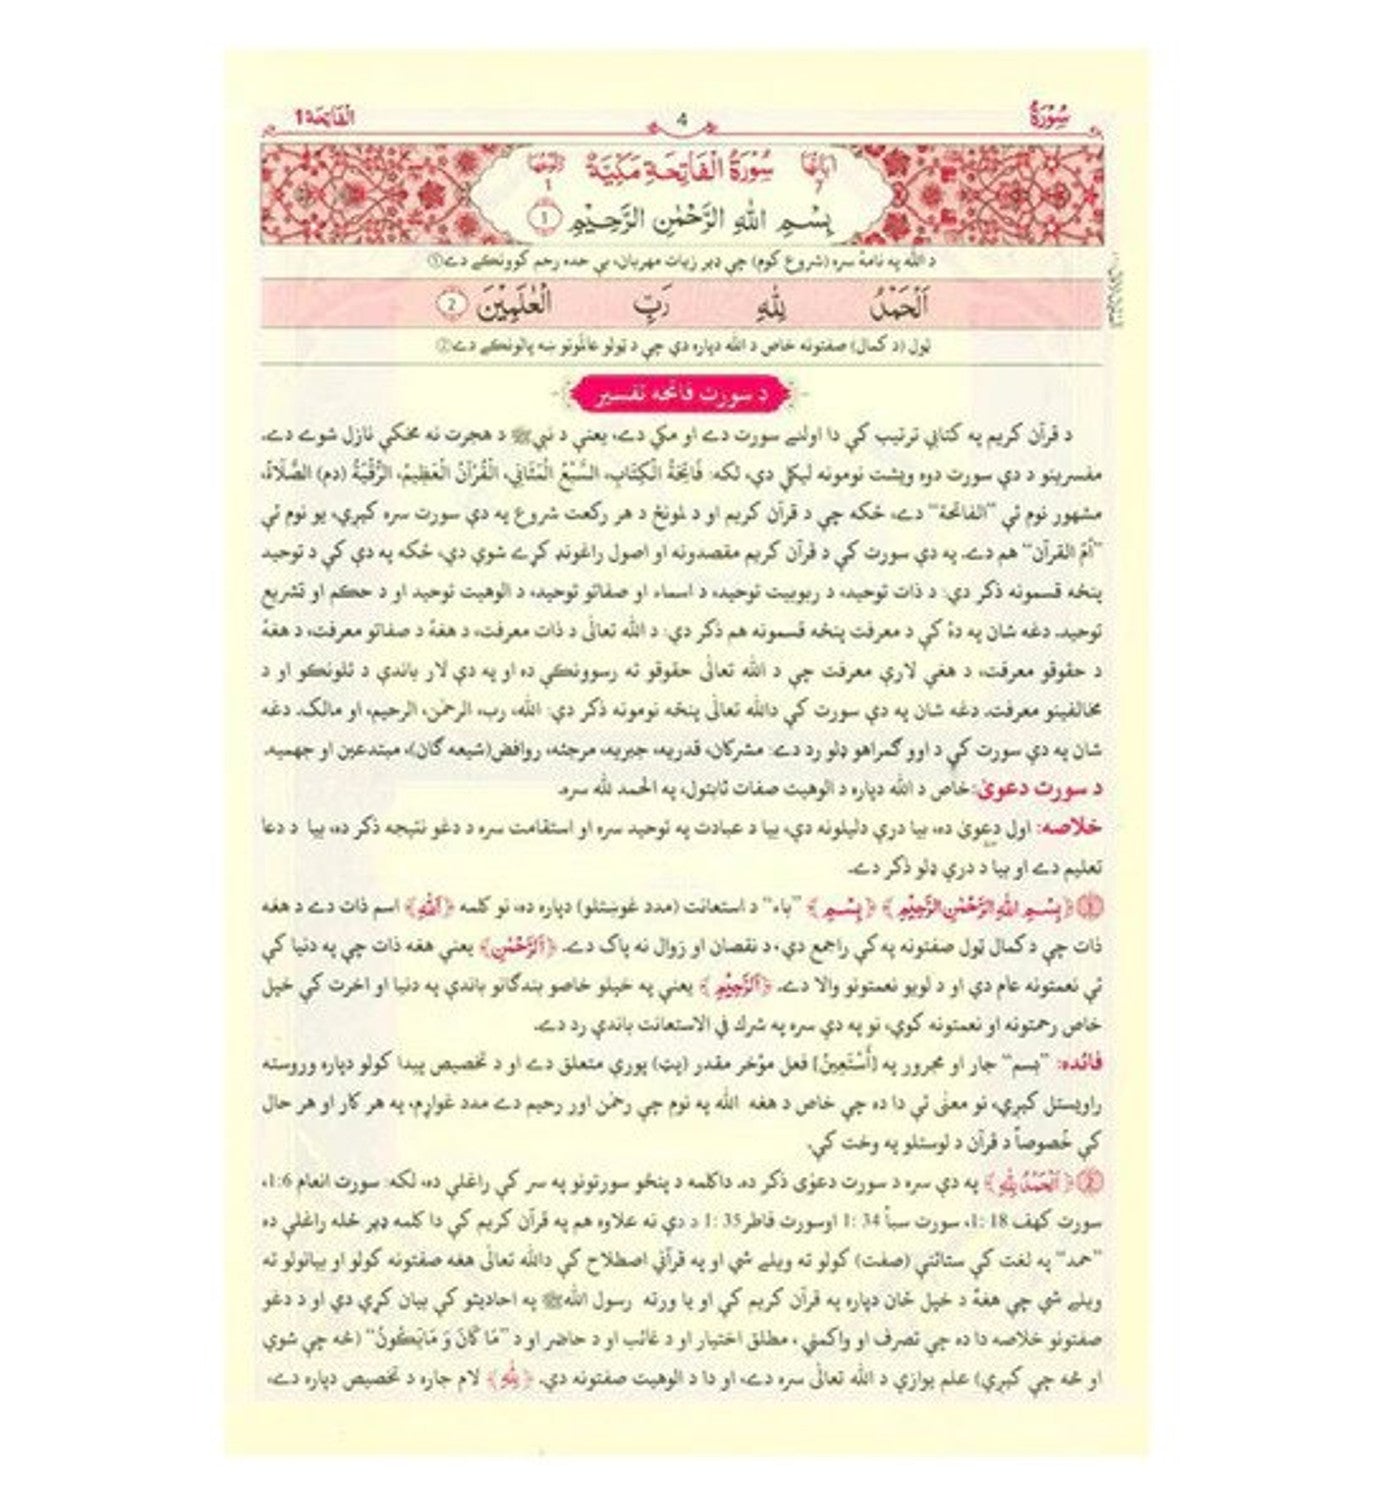 سُوْرَةُ 4 الْفَاتِحَة 1
اٰيَاتُهَا 7 سُوْرَةُ الْفَاتِحَةِ مَكِّيَّةٌ رُكُوْعُهَا 1
بِسْمِ اللهِ الرَّحْمٰنِ الرَّحِيْمِ 1
د الله په نامۀ سره (شروع کوم) چې ډېر زيات مهربان، بې حده رحم کوونکے دے①
اَلْحَمْدُ لِلّٰهِ رَبِّ الْعٰلَمِيْنَ 2
ټول (د کمال) صفتونه خاص د الله دپاره دي چې د ټولو عالمونو ښه پالونکے دے②
د سورت فاتحه تفسير
د قرآن کريم په کتابي ترتيب کې دا اولنے سورت دے او مکي دے، يعنې د نبيﷺ د هجرت نه مخکې نازل شوے دے.
مفسرينو د دې سورت دوه ويشت نومونه ليکلي دي، لکه: فَاتِحَةُ الْكِتَابِ، السَّبْعُ الْمَثَانِي، الْقُرْآنُ الْعَظِيمُ، الرُّقْيَةُ (دم) الصَّلَاةُ،
مشهور نوم ئې "الفاتحة" دے، ځکه چې د قرآن کريم او د لمونځ د هر رکعت شروع په دې سورت سره کېږي، يو نوم ئې
"اُمّ القرآن" هم دے. په دې سورت کې د قرآن کريم مقصدونه او اصول راغونډ کړے شوي دي، ځکه په دې کې د توحيد
پنځه قسمونه ذکر دي: د ذات توحيد، د ربوبيت توحيد، د اسماء او صفاتو توحيد، د الوهيت توحيد او د حکم او تشريع
توحيد. دغه شان په دۀ کې د معرفت پنځه قسمونه هم ذکر دي: د الله تعالٰی د ذات معرفت، د هغۀ د صفاتو معرفت، د هغۀ
د حقوقو معرفت، د هغې لارې معرفت چې د الله تعالٰی حقوقو ته رسوونکې ده او په دې لار باندې د تلونکو او د
مخالفينو معرفت. دغه شان په دې سورت کې دالله تعالٰی پنځه نومونه ذکر دي: الله، رب، الرحمٰن، الرحيم، او مالک. دغه
شان په دې سورت کې د اوو ګمراهو ډلو رد دے: مشرکان، قدريه، جبريه، مرجئه، روافض(شيعه ګان)، مبتدعين او جهميه.
د سورت دعوىٰ: خاص د الله دپاره د الوهيت صفات ثابتول، په الحمد لله سره.
خلاصه: اول دعوىٰ ده، بيا درې دليلونه دي، بيا د عبادت په توحيد سره او استقامت سره د دغو نتيجه ذکر ده، بيا د دعا
تعليم دے او بيا د درې ډلو ذکر دے.
1 ﴿بِسْمِ اللهِ الرَّحْمٰنِ الرَّحِيْمِ﴾ ﴿بِسْمِ﴾ "باء" د استعانت (مدد غوښتلو) دپاره ده، نو کلمه ﴿اَللهِ﴾ اسم ذات دے د هغه
ذات چې د کمال ټول صفتونه په کې راجمع دي، د نقصان او زوال نه پاک دے. ﴿اَلرَّحْمٰنِ﴾ يعنې هغه ذات چې په دنيا کې
ئې نعمتونه عام دي او د لويو نعمتونو والا دے. ﴿اَلرَّحِيْمِ﴾ يعنې په خپلو خاصو بندګانو باندې په دنيا او اخرت کې خپل
خاص رحمتونه او نعمتونه کوي، نو په دې سره په شرك في الاستعانت باندې رد دے.
فائده: "بسم" جار او مجرور په [أَسْتَعِينُ] فعل مؤخر مقدر (پټ) پورې متعلق دے او د تخصيص پيدا کولو دپاره وروسته
راويستل کېږي، نو معنٰی ئې دا ده چې خاص د هغه الله په نوم چې رحمٰن اور رحيم دے مدد غواړم، په هر کار او هر حال
کې خُصوصاً د قرآن د لوستلو په وخت کې.
2 ﴿اَلْحَمْدُ لِلّٰهِ﴾ په دې سره د سورت دعوٰی ذکر ده. داکلمه د پنځو سورتونو په سر کې راغلې ده، لکه: سورت انعام 1:6،
سورت کهف 18 :1، سورت سبأ 34 :1 اوسورت فاطر35 :1 د دې نه علاوه هم په قرآن کريم کې دا کلمه ډېر ځله راغلې ده
"حمد" په لغت کې ستائنې (صفت) کولو ته ويلے شي او په قرآني اصطلاح کې دالله تعالٰی هغه صفتونه کولو او بيانولو ته
ويلے شي چې هغۀ د خپل ځان دپاره په قرآن کريم کې او يا ورته رسول اللهﷺ په احاديثو کې بيان کړي دي او د دغو
صفتونو خلاصه دا ده چې تصرف او واکمني، مطلق اختيار او د غائب او د حاضر او د "مَا كَانَ وَ مَايَكُونُ" (څه چې شوي
او څه چې کېږي) علم يوازې د الله تعالٰی سره دے، او دا د الوهيت صفتونه دي. ﴿لِلّٰهِ﴾ لام جاره د تخصيص دپاره دے،